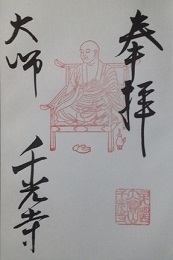 奉拝
大師
千光寺